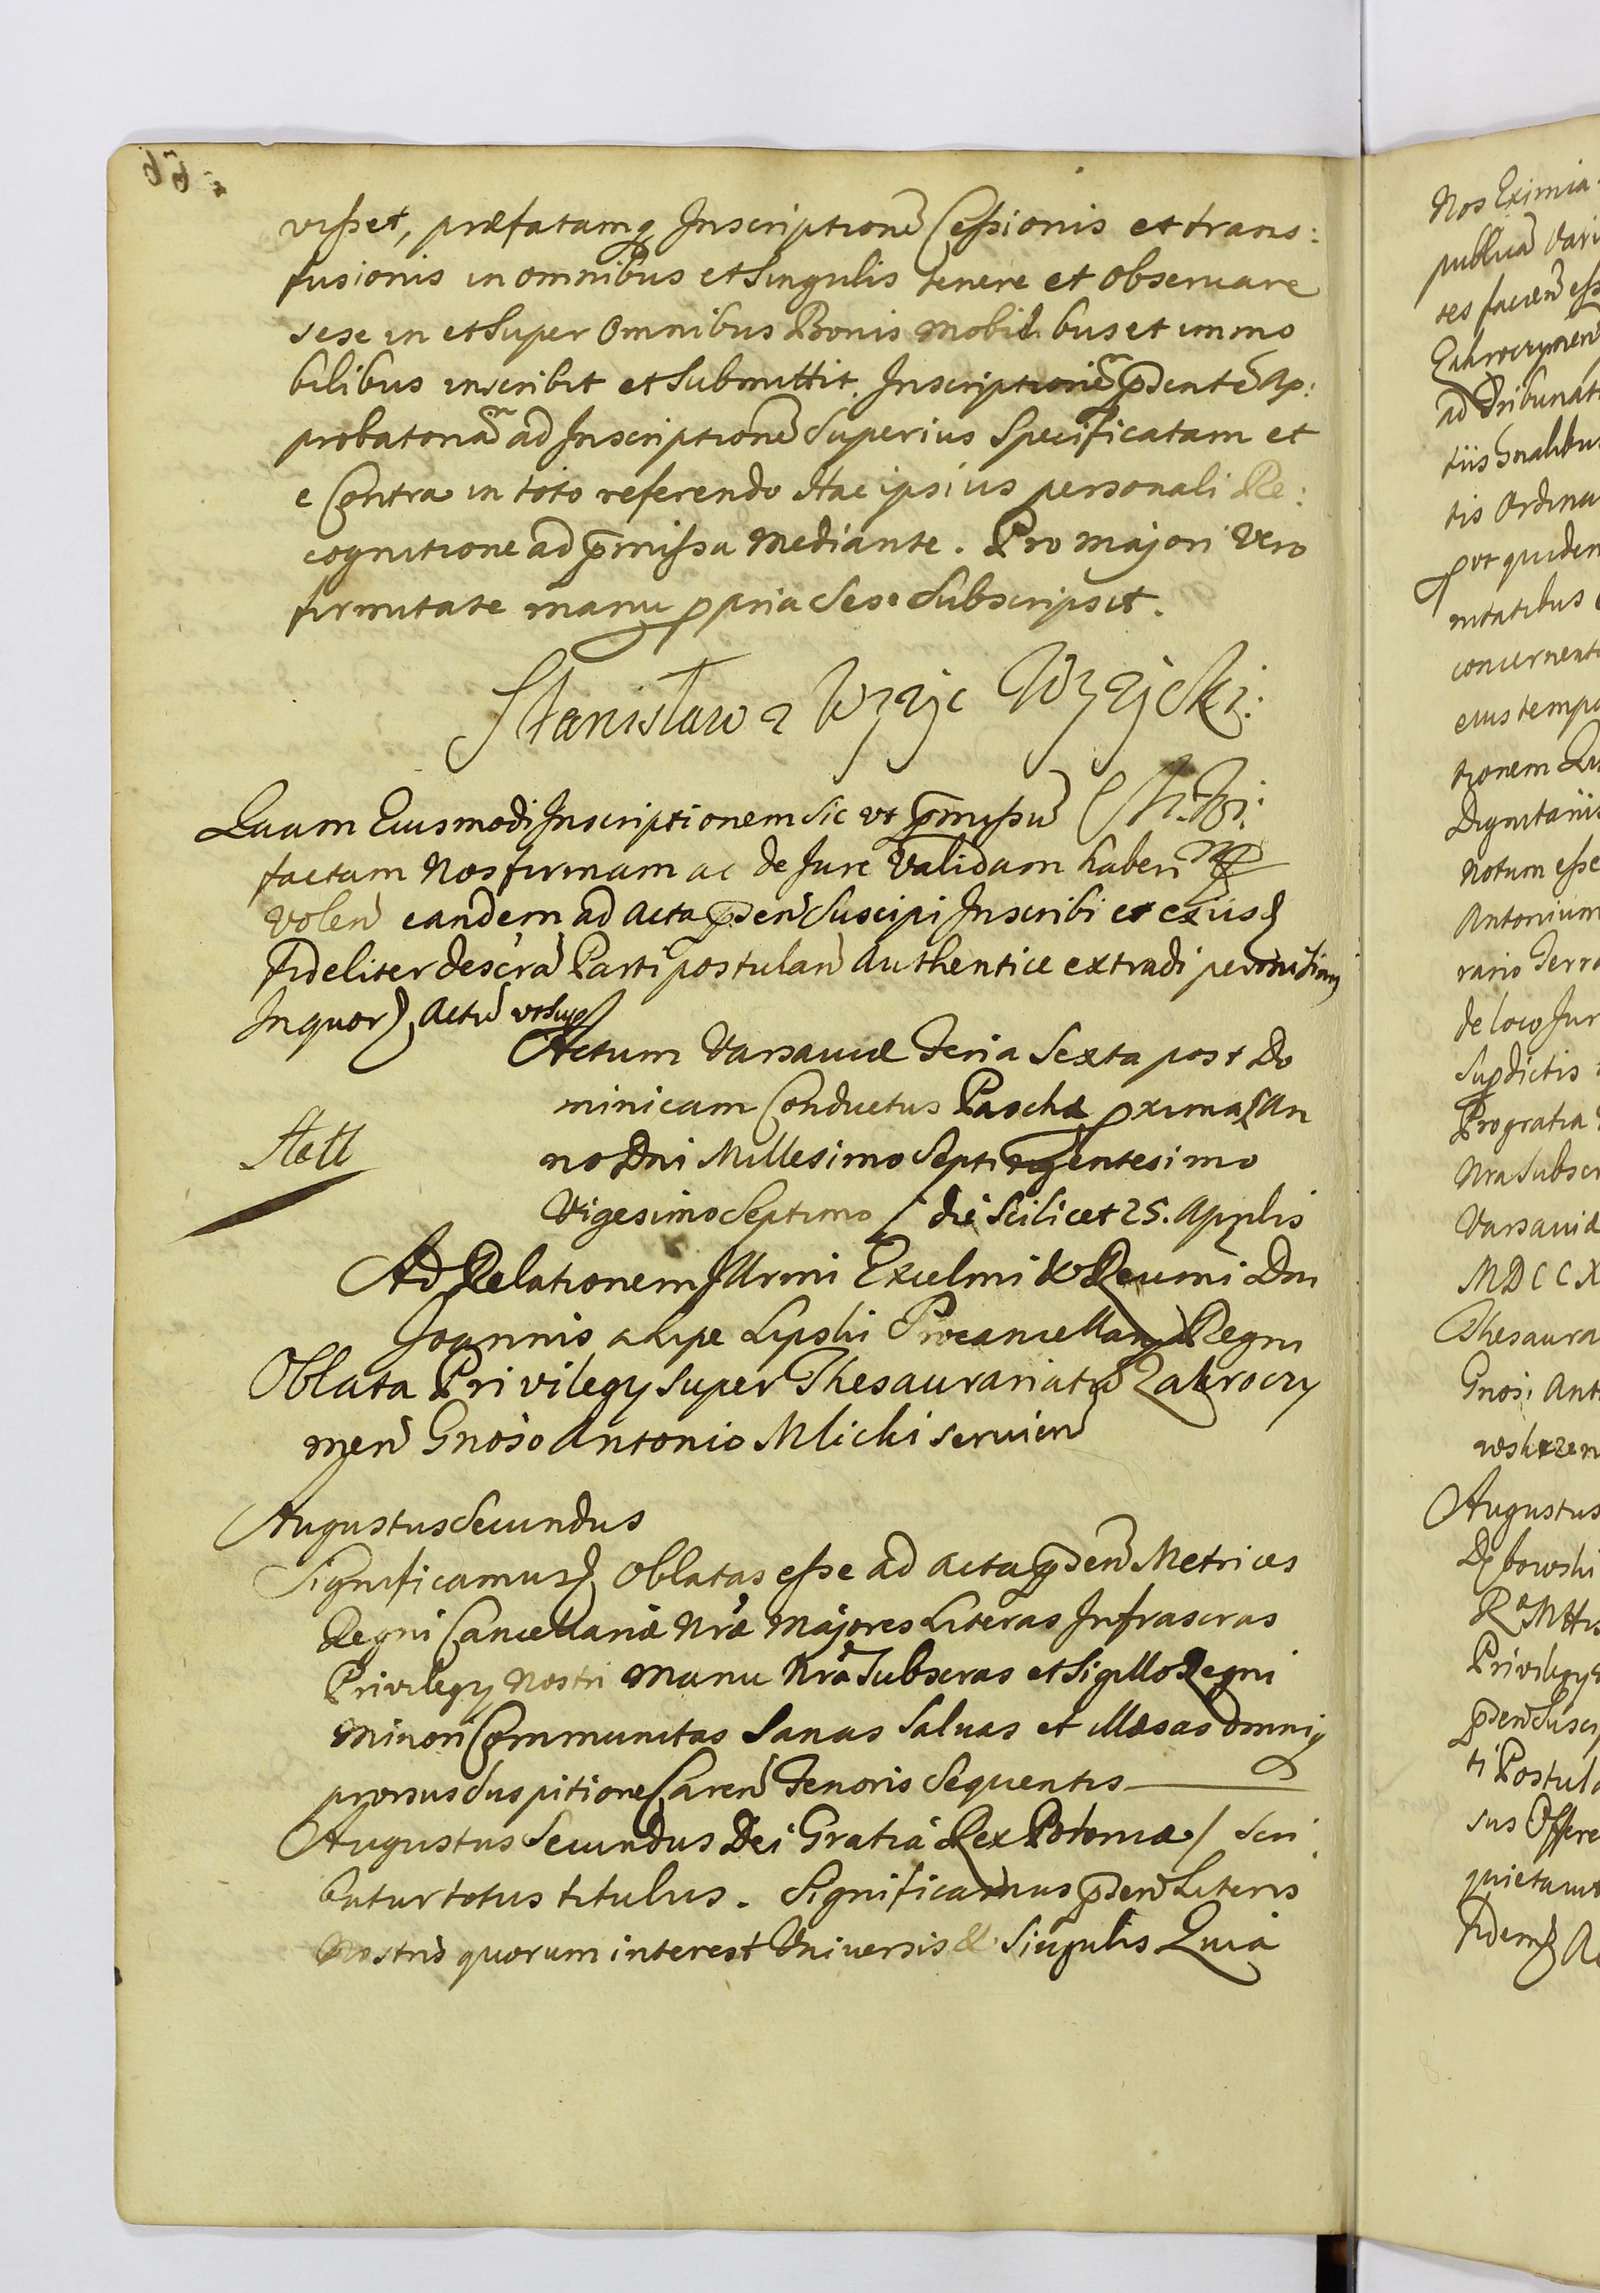 visset, præfatamq Inscriptionē Cessionis et trans:
fusionis in omnibus et Singulis tenere et observare
sese in et Super Omnibus Bonis Mobili bus et immo
bilibus inscribit et Submittit. Inscriptionē p̄sentē Ap:
probatoriā ad Inscriptionē Superius Specificatam et
e Contra in toto referendo Hac ipsius personali Re:
cognitione ad p̄missa Mediante. Pro Majori Vero
firmitate manu ppria Sese Subscripsit.
Stanisław z Wzajc Wzajcki
Quam Eiusmodi Inscriptionem Sic ut p̄missū
factam Nos firmam ac de Jure Validam haberi
Volen eandem ad Acta p̄sen Suscipi Inscribi et exinde
fideliter descra Parti postulan Authentice extradi permisimus
In quor Actū ut Supr
Actum Varsaviæ Feria Sexta post Do
minicam Conductus Paschæ pxima An
no Dni Millesimo Septingentesimo
Vigesimo Septimo / die Scilicet 25. Aprilis
Ad Relationem Illrmi Excelmi & Reumi Dni
Joannis a Lipe Lipski Procancellarij Regni
Oblata Privilegy super Thesaurariatū Zakroczy
men Gnoso Antonio Mlicki servien
Augustus Secundus
Significamus Oblatas esse ad Acta p̄sen Metrices
Regni Cancellariæ Nræ Majores Literas Infrascras
Privilegy Nostri Manu Nra Subscras et Sigillo Regni
Minori Communitas Sanas Salvas et illæsas omniq
prorsus Suspitione Caren Tenoris Sequentis
Augustus Secundus Dei Gratiâ Rex Poloniæ / Scri
batur totus titulus. Significamus p̄sen Literis
Nostris quorum interest Universis & Singulis Quia
Nos Eximia
publicā Vari
ad Tribunat
tis Ordina
put quidem
concernenti
eius tempo
tionem
Dignitariis
Notum esse
Antonium
rario Terra
de loco Jur
Supdictis
Pro gratia
Nra Subscr
Varsaviæ
MDCCX
Thesaura
Gnosi Ant
Augustus
Privilegy
ti Postula
sus Offere